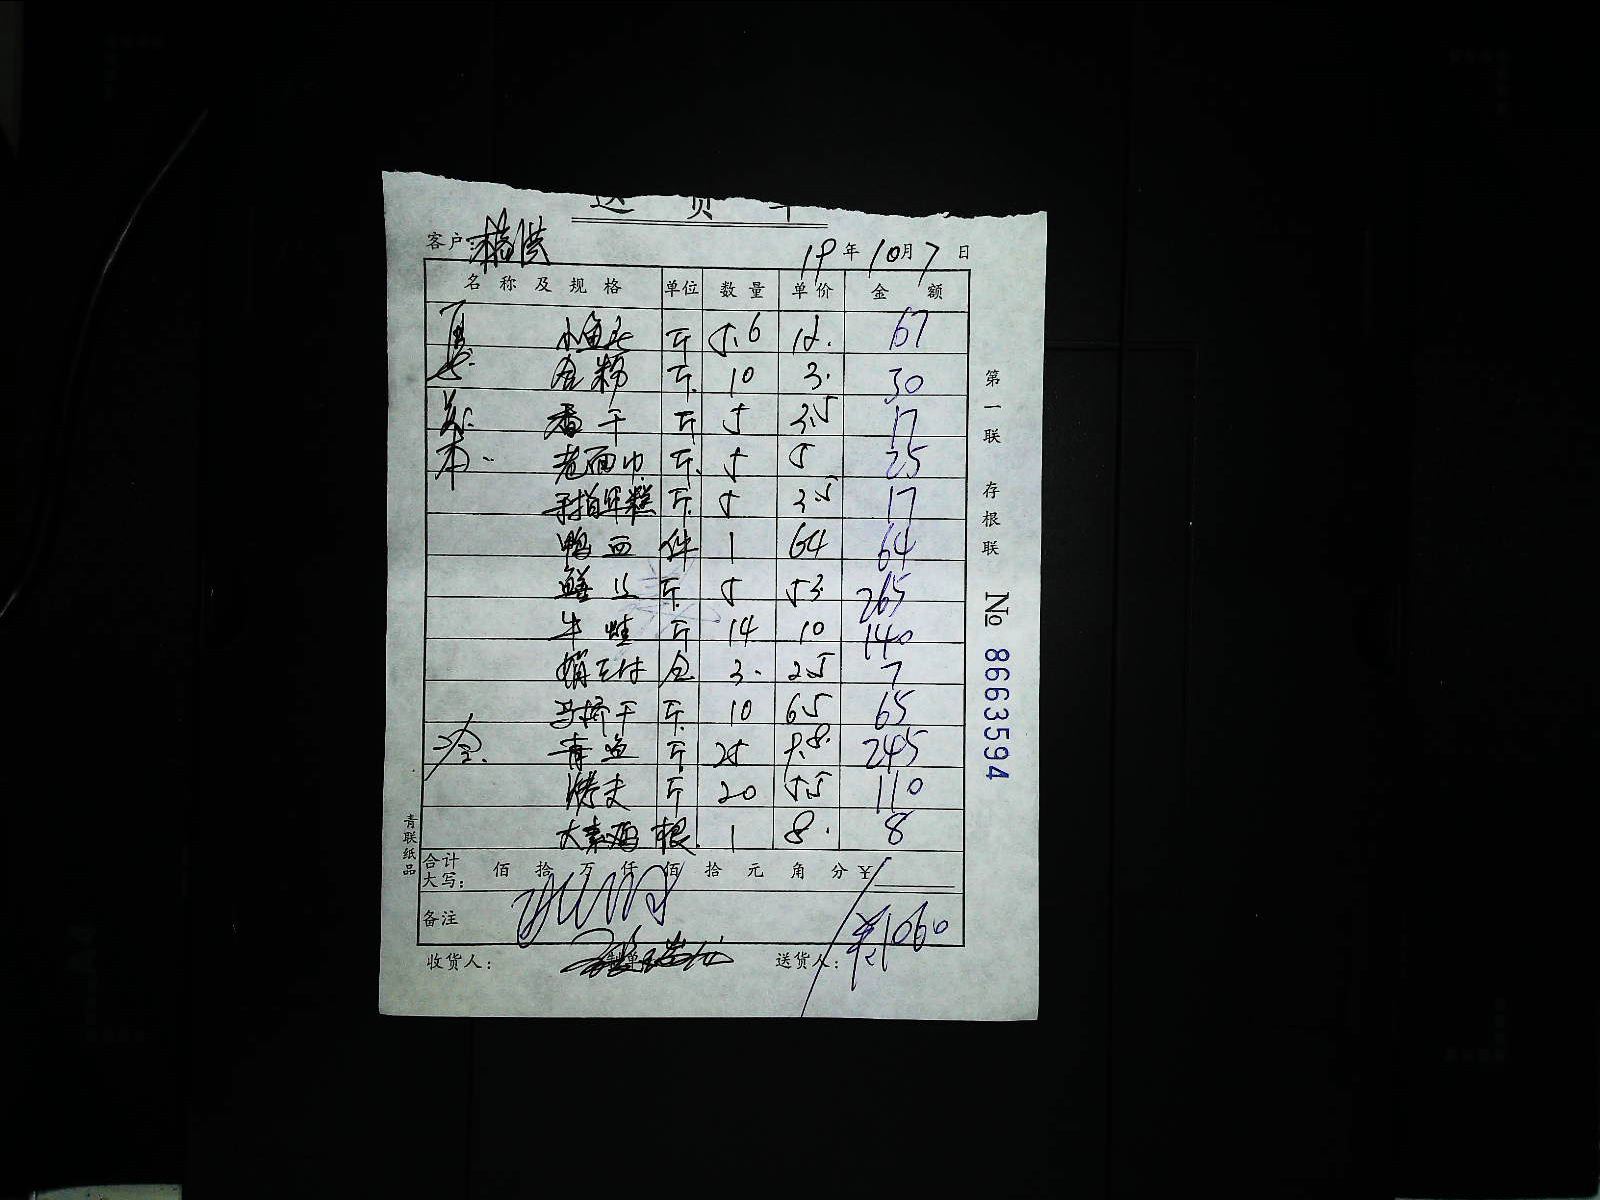 送货单
客户 19年10月7日
名称及规格 单位 数量 单价 金额
小鱼 斤 5.6 12. 67
粉 斤 10 3. 30
香干 斤 5 3.5 17
老面巾 斤 5 5 25
手指年糕 斤 5 3.5 17
鸭血 件 1 64 64
鳝丝 斤 5 53. 265
牛蛙 斤 14 10 140
3. 2.5 7
马桥干 斤 10 6.5 65
冷. 青鱼 斤 25 9.8. 245
斤 20 5.5 110
大素 根 1 8. 8
合计大写: 佰 拾 万 仟 佰 拾 元 角 分 ¥
备注 ¥1060
收货人: 制单 送货人:
第一联 存根联
№ 8663594
青联纸品